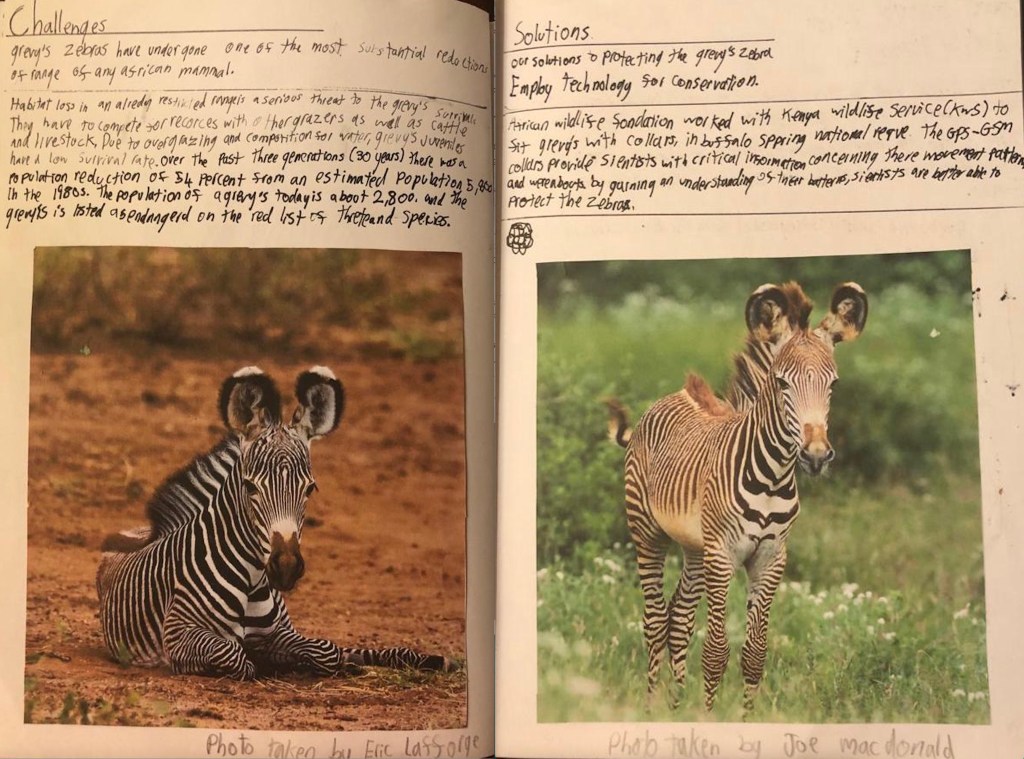 Challenges
grevy's zebras have undergone one of the most substantial reductions
of range of any african mammal.
Habitat loss in an alredy restrikted range is a serious threat to the grevy's survival.
They have to compete for recorces with other grazers as well as cattle
and livestock, Due to overgrazing and compotition for water, grevy's juveniles
have a low survival rate. over the Past three generations (30 years) there was a
Population reduction of 54 percent from an estimated population 5,800
In the 1980s. The population of a grevy's today is about 2,800. and the
grevy's is listed as endngerd on the red list of thretend species.
Photo taken by Eric Lafforge
Solutions
our solutions to protecting the grevy's zebra
Employ Technology for Conservation.
African wildlife fondation worked with Kenya wildlife Service (KWS) to
fit grevy's with collars, in buffalo spring national reque. The GPS-GSM
collars provide sientists with critical information concerning there movement patterns
and wereabouts by gaining an understanding of their patterns, sientists are better able to
Protect The Zebras.
Photo taken by Joe macdonald